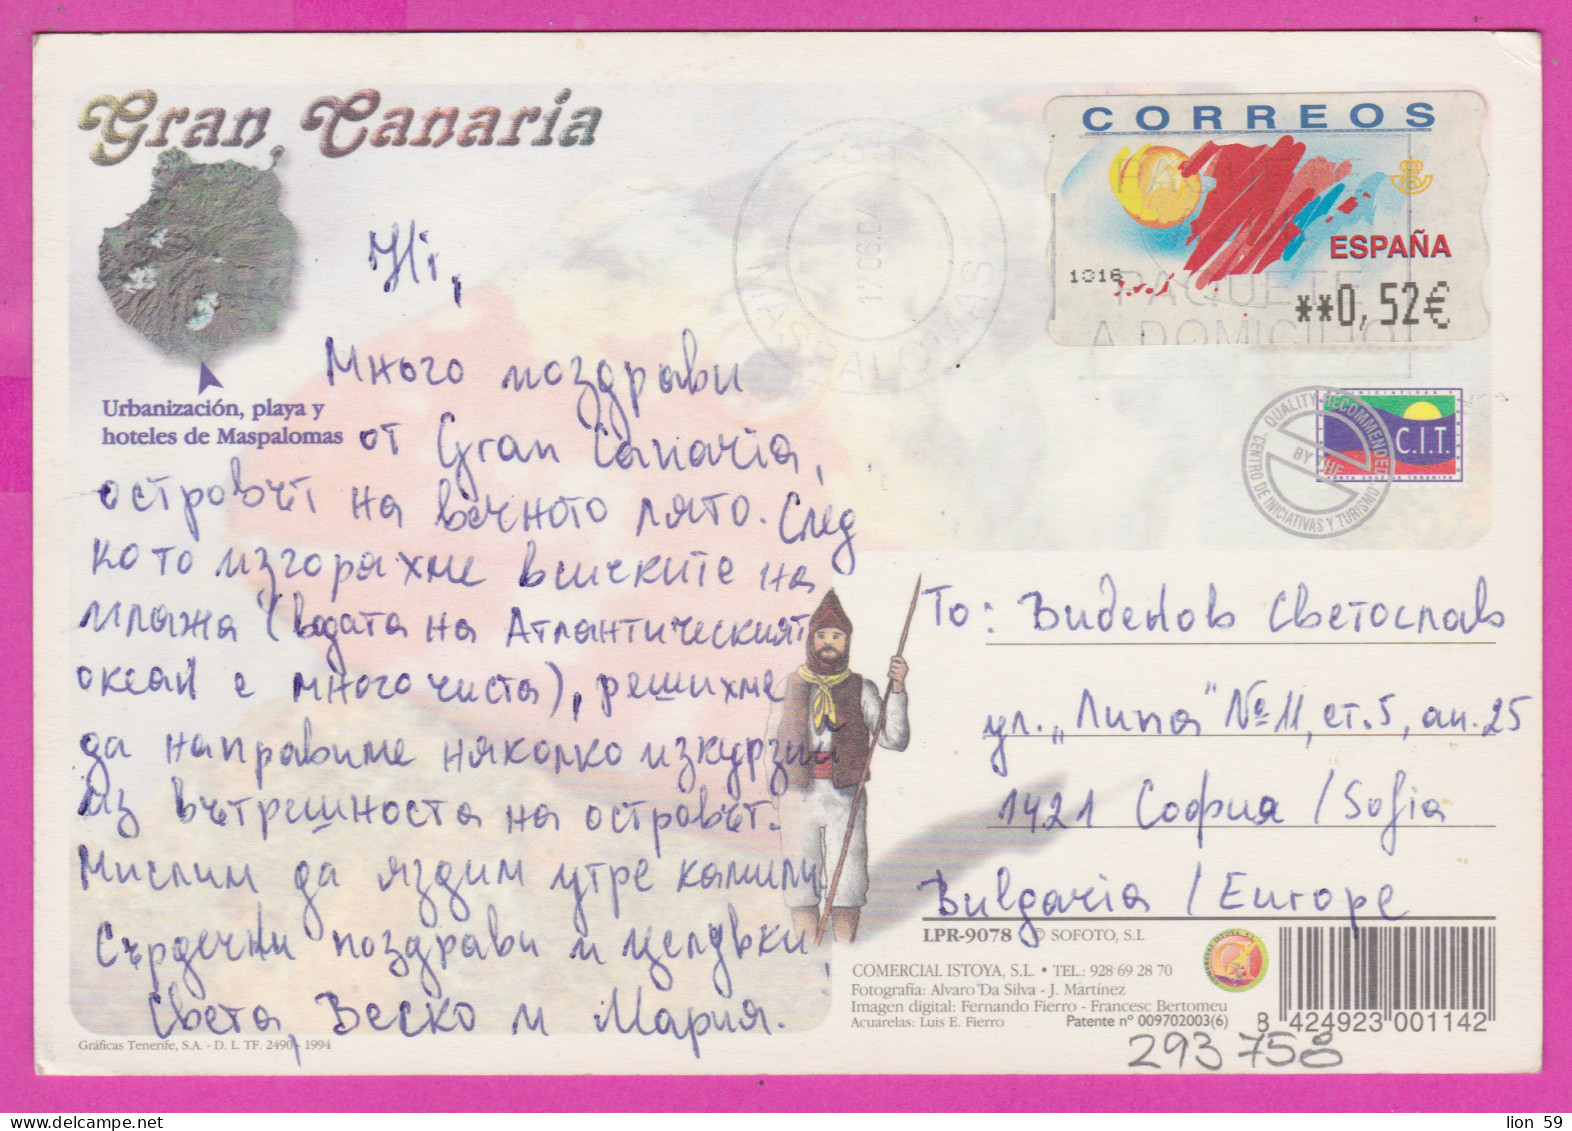 Gran Canaria
Urbanización, playa y
hoteles de Maspalomas
Hi,
Много поздрави
от Gran Canaria,
островът на вечното лято. След
като изгоряхме всичките на
плажа (водата на Атлантическият
океан е много чиста), решихме
да направиме няколко изкурзии
из вътрешността на островът.
Мислим да яздим утре камили.
Сърдечни поздрави и целувки,
Света, Веско и Мария.
Gráficas Tenerife, S.A. - D. L. TF. 2490 - 1994
CORREOS
ESPAÑA
1016
**0,52€
PAQUETE
A DOMICILIO
17 06.04
MASPALOMAS
QUALITY RECOMMENDED
BY THE
CENTRO DE INICIATIVAS Y TURISMO
C.I.T.
To: Виденов Светослав
ул. „Липа" № 11, ет. 5, ап. 25
1421 София / Sofia
Bulgaria / Europe
LPR-9078 © SOFOTO, S.L
COMERCIAL ISTOYA, S.L. • TEL.: 928 69 28 70
Fotografía: Alvaro Da Silva - J. Martínez
Imagen digital: Fernando Fierro - Francesc Bertomeu
Acuarelas: Luis E. Fierro
Patente nº 009702003(6)
8 424923 001142
293758
lion 59